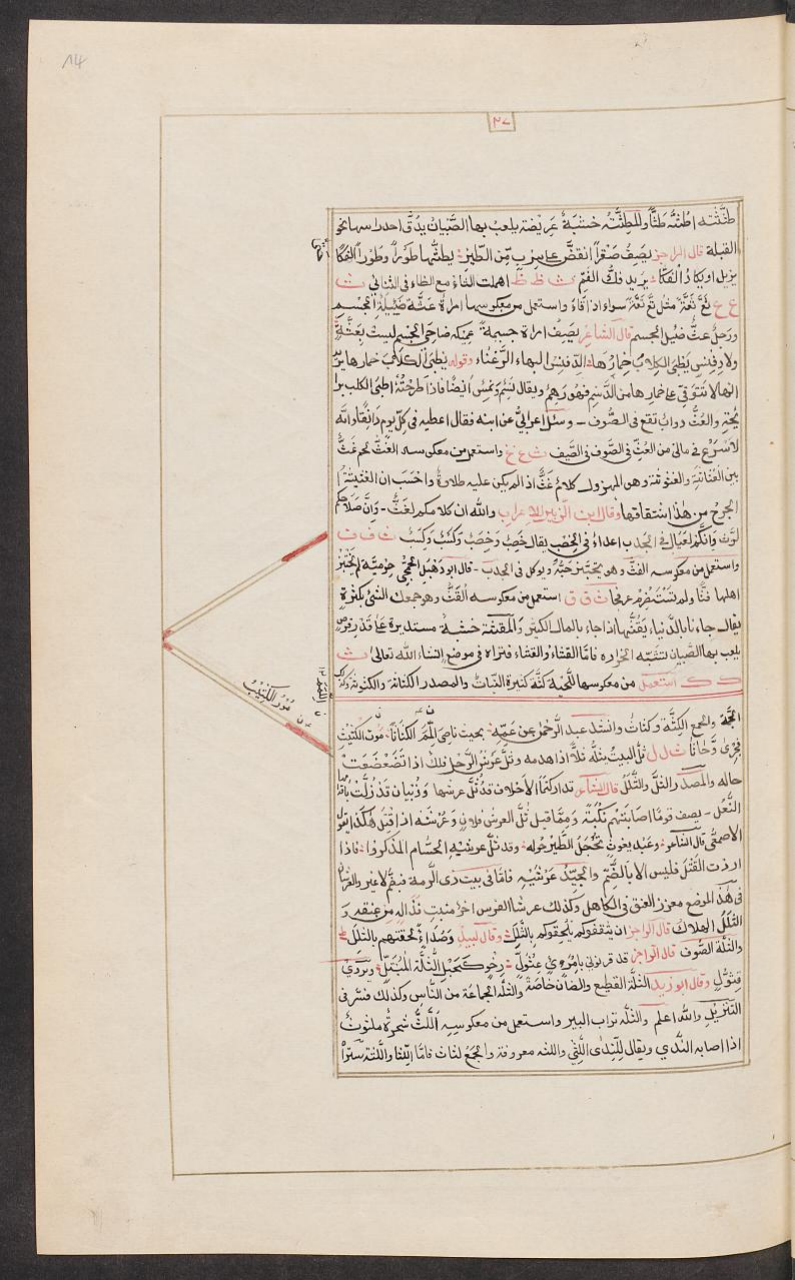 14
٢٧
طثثته اطثه طثّاً والمطثّته خشبة عريضة يلعب بها الصّبيان يدق احد راسها نحو
القبلة قال الراجز يصف صقراً انقضّ على سرب من الطير يطثّها طوراً وطوراً الفكا
يزيل او يكاد الفكا يريد فك الفم ث ظ ظ اهملت الثاء مع الظاء فى الثنائي ث
ع ع ثع ثعّة مثل تع تعّة سواء اذا قاء واستعمل من معكوسها امراة عثّة ضئيلة الجسم
ورجل عثّ ضئيل الجسم قال الشاعر يصف امراة جسيمة عميمة ضاحى الجسم ليست بعثّة
ولا دفنس يطبى الكلاب خمارها الدفنس البلهاء الرعناء وقوله يطبى الكلاب خمارها يريد
انها لا تتوقى على خمارها من الدسم فهو زهم ويقال نسم ونمس ايضا فاذا طرحته اطبى الكلب برا
يحته والعثّ دواب تقع فى الصوف وسئل اعرابي عن ابنه فقال اعطيه فى كل يوم دانقا والله
لاسرع فى مالى من العث فى الصوف فى الصيف ث غ غ واستعمل من معكوسه الغث لحم غث
بين الغثاثة والغثوثة وهو المهزول كلام غث اذا لم يكن عليه طلاوة واحسب ان الغثيثة
الجرح من هذا اشتقاقها وقال ابن الزبير للاعراب والله ان كلامكم لغث وان سلاحكم
لرث وانكم لعيال فى الجدب اعداء فى الخصب يقال خصب وخصب ث ف ف
واستعمل من معكوسه الفث وهو نبت يختبز حبّه ويوكل فى الجدب قال ابو دهبل الجمحى حرمية لم يختبز
اهلها فثا ولم تستضرم عرفجا ث ق ق استعمل من معكوسه القث وهو جمعك الشئ بكثرة
يقال جاءنا بالدنيا يقثها اذا جاء بالمال الكثير والمقثة خشبة مستديرة على قدر قرص
يلعب بها الصبيان تشبه الخراره فاما القثاء والغثاء فتراه فى موضع انشاء الله تعالى ث
ك ك استعمل من معكوسها للحية كثّة كثيرة النبات والمصدر الكثاثة والكثوثة
الجمّة والجمع الكثّة وكثاث وانشد عبد الرحمن عن عمّه بحيث ناصى اللمم الكثاثا مور الكثيب
فجرى وحاثا ث ل ل ثل البيت يثله ثلّا اذا هدمه وثل عرش الرجل ثلك اذا تضعضعت
حاله والمصدر الثل والثلل قال الشاعر تداركتما الاحلاف قد ثل عرشها وذبيان قد زلت
النعل يصف قوما اصابتهم نكبة ومما قيل ثل العرش فلان وعرشه اذا قتل هكذا يقول
الاصمعى قال الشاعر وعبد يغوث تحجل الطير حوله وقد ثل عرشيه الحسام المذكر فاذا
اردت القتل فليس الا بالضم والجيد عرشيه فاما فى بيت ذى الرمة فبضم لا غير والعرشان
فى هذا الموضع مغرز العنق فى الكاهل وكذلك عرشا الفرس اخر منبت قذاله من عنقه و
الثلل الهلاك قال الراجز ان يثقفوكم يلحقوكم بالثلل وقال لبيد وصداء الحقتهم بالثلل
والثلة الصوف قال الراجز قد قرنونى بامرء عثول رخو كحبل الثلة المبتل ويروى
قثول وقال ابو زيد الثلة القطيع والضان خاصة والثلة الجماعة من الناس وكذلك فسر فى
التنزيل والله اعلم والثلة تراب البير واستعمل من معكوسه اللث شجرة ملثوث
اذا اصابه الندى ويقال للندى اللثى واللثه معروفة والجمع لثات فاما اللثا واللثة ستراه
مور الكثيب